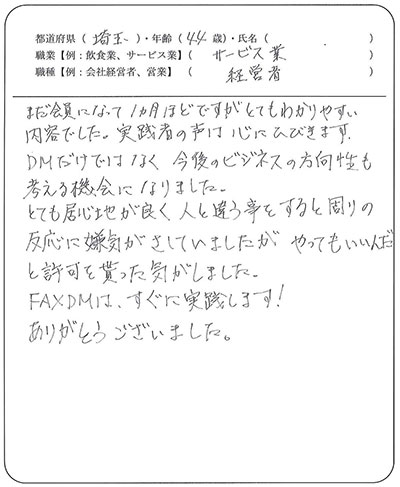 都道府県（ 埼玉 ）・年齢（ 44 歳）・氏名（ ）
職業【例：飲食業、サービス業】（ サービス業 ）
職種【例：会社経営者、営業】（ 経営者 ）
まだ会員になって1カ月ほどですがとてもわかりやすい
内容でした。実践者の声は心にひびきます。
DMだけではなく 今後のビジネスの方向性も
考える機会になりました。
とても居心地が良く 人と違う事をすると周りの
反応に嫌気がさしていましたが やってもいいんだ
と許可を貰った気がしました。
FAXDMは、すぐに実践します！
ありがとうございました。